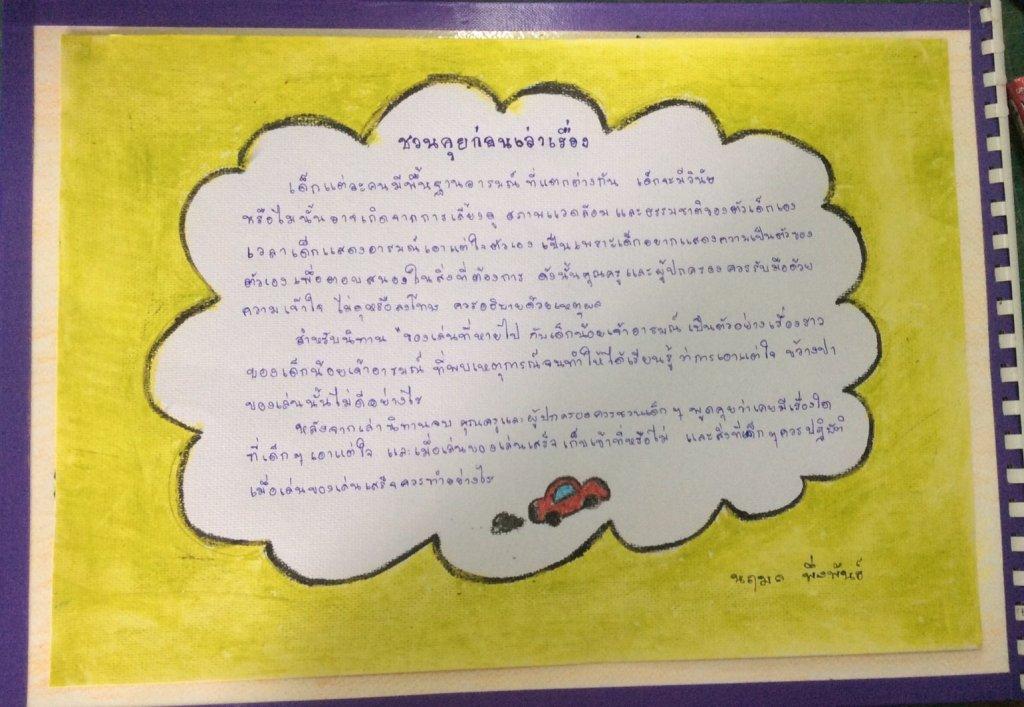 ชวนคุยก่อนเล่าเรื่อง
เด็กแต่ละคนมีพื้นฐานอารมณ์ ที่แตกต่างกัน เด็กจะมีวินัย
หรือไม่นั้นอาจเกิดจากการเลี้ยงดู สภาพแวดล้อม และธรรมชาติของตัวเด็กเอง
เวลาเด็กแสดงอารมณ์เอาแต่ใจตัวเอง เป็นเพราะเด็กอยากแสดงความเป็นตัวของ
ตัวเอง เพื่อตอบสนองในสิ่งที่ต้องการ ดังนั้นคุณครูและผู้ปกครองควรรับมือด้วย
ความเข้าใจ ไม่ดุหรือลงโทษ ควรอธิบายด้วยเหตุผล
สำหรับนิทาน "ของเล่นที่หายไป กับเด็กน้อยเจ้าอารมณ์ เป็นตัวอย่างเรื่องราว
ของเด็กน้อยเจ้าอารมณ์ ที่พบเหตุการณ์จนทำให้ได้เรียนรู้ ว่าการเอาแต่ใจ ขว้างปา
ของเล่นนั้นไม่ดีอย่างไร
หลังจากเล่านิทานจบ คุณครูและผู้ปกครองควรชวนเด็ก ๆ พูดคุยว่าเคยมีเรื่องใด
ที่เด็ก ๆ เอาแต่ใจ และเมื่อเล่นของเล่นเสร็จ เก็บเข้าที่หรือไม่ และสิ่งที่เด็ก ๆ ควรปฏิบัติ
เมื่อเล่นของเล่นเสร็จควรทำอย่างไร
นฤมล พึ่งพันธ์